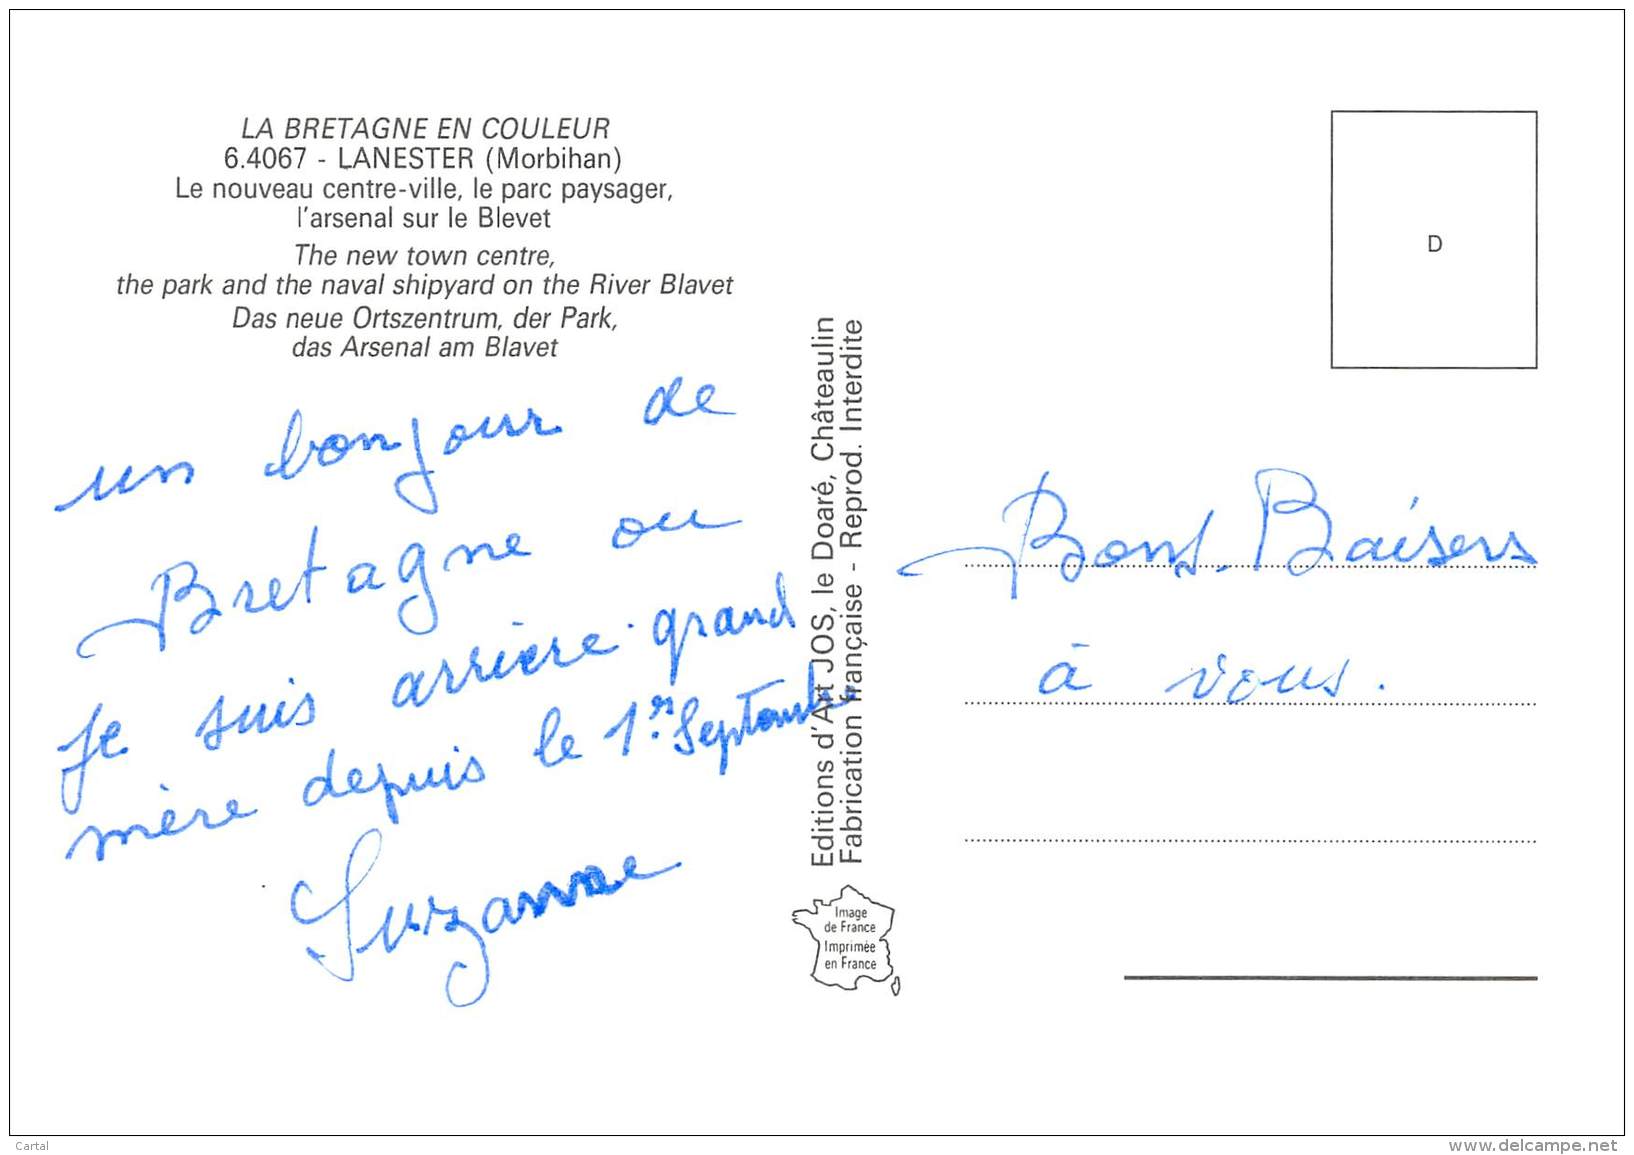 LA BRETAGNE EN COULEUR
6.4067 - LANESTER (Morbihan)
Le nouveau centre-ville, le parc paysager,
l'arsenal sur le Blevet
The new town centre,
the park and the naval shipyard on the River Blavet
Das neue Ortszentrum, der Park,
das Arsenal am Blavet
un bonjour de
Bretagne ou
je suis arrière grand
mère depuis le 1er Septembre
Suzanne
Editions d'Art JOS, le Doaré, Châteaulin
Fabrication française - Reprod. Interdite
Image
de France
Imprimée
en France
D
Bons Baisers
à vous.
Cartal
www.delcampe.net